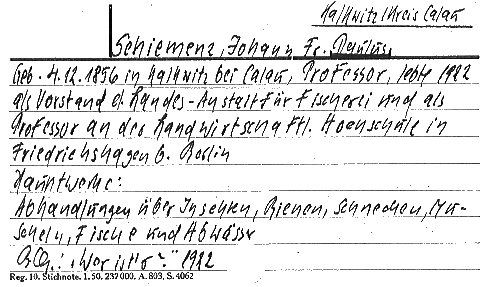 Kalkwitz/Kreis Calau
Schiemenz, Johann Fr. Paulus,
Geb. 4.12.1856 in Kalkwitz bei Calau, Professor, lebte 1922
als Vorstand d. Landes-Anstalt für Fischerei und als
Professor an der Landwirtschaftl. Hochschule in
Friedrichshagen b. Berlin
Hauptwerke:
Abhandlungen über Insekten, Bienen, Schnecken, Mu-
scheln, Fische und Abwässer
"Wer ist's" 1922
Reg. 10. Stichnote. 1. 50. 237 000. A. 803, S. 4062